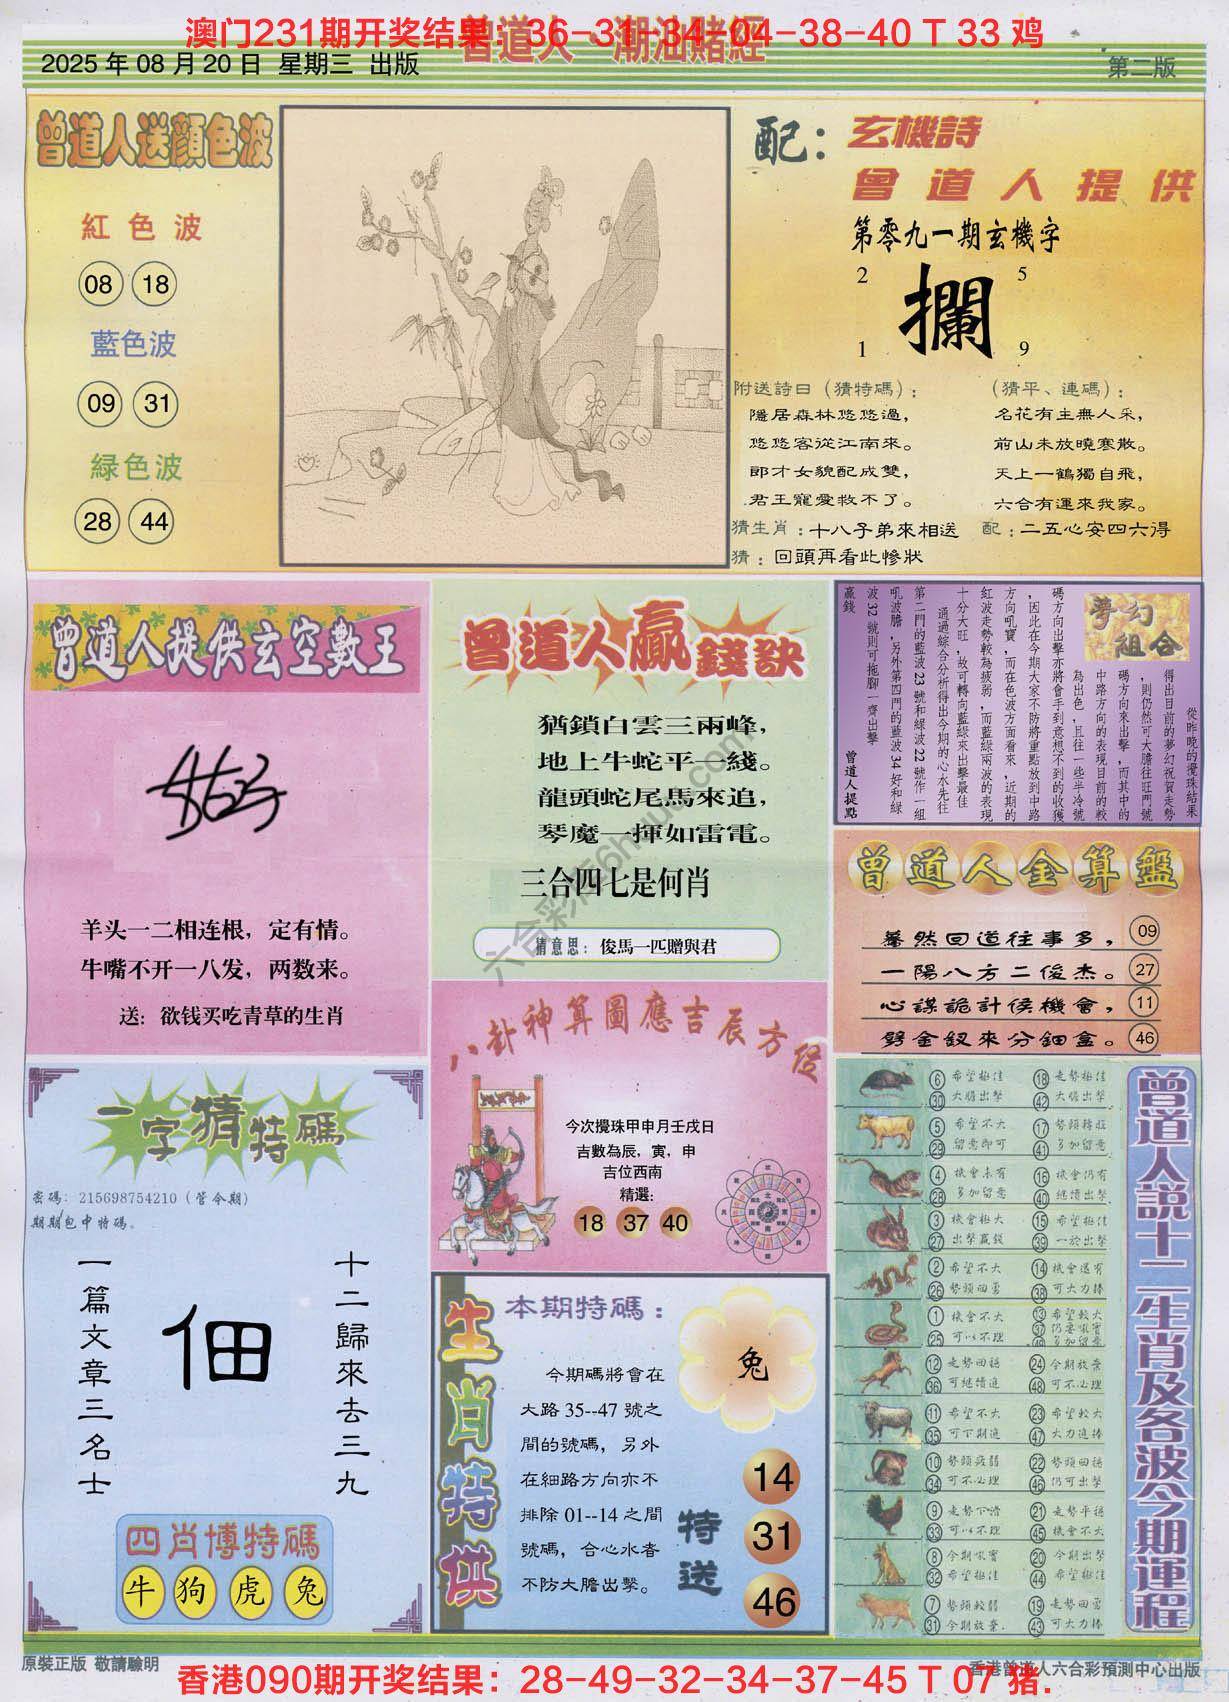 澳门231期开奖结果：36-31-34-04-38-40 T 33 鸡
曾道人·潮汕賭經
2025 年 08 月 20 日 星期三 出版
第二版
曾道人送顏色波
紅色波
08 18
藍色波
09 31
緑色波
28 44
配：玄機詩
曾道人提供
第零九一期玄機字
2 5
攔
1 9
附送詩曰（猜特碼）：
隱居森林悠悠過，
悠悠客從江南來。
郎才女貌配成雙，
君王寵愛救不了。
（猜平、連碼）：
名花有主無人采，
前山未放曉寒散。
天上一鶴獨自飛，
六合有運來我家。
猜生肖：十八子弟來相送
配：二五心安四六得
猜：回頭再看此慘狀
曾道人提供玄空數王
羊头一二相连根，定有情。
牛嘴不开一八发，两数来。
送：欲钱买吃青草的生肖
曾道人贏錢訣
猶鎖白雲三兩峰，
地上牛蛇平一綫。
龍頭蛇尾馬來追，
琴魔一揮如雷電。
三合四七是何肖
猜意思：俊馬一匹贈與君
夢幻組合
從昨晚的攪珠結果
得出目前的夢幻祝賀走勢
，則仍然可大膽往旺門號
碼方向來出擊，而其中的
中路方向的表現目前的較
為出色，且往一些半冷號
碼方向出擊亦將會手到意想不到的收獲
，因此在今期大家不防將重點放到中路
方向吼寶，而在色波方面看來，近期的
紅波走勢較為疲弱，而藍綠兩波的表現
十分大旺，故可轉向藍綠來出擊最佳
通過綜合分析得出今期的心水先往
第二門的藍波 23 號和綠波 22 號作一組
吼波膽，另外第四門的藍波 34 好和綠
波 32 號則可拖腳一齊出擊
贏錢
曾道人提點
曾道人金算盤
驀然回道往事多， 09
一陽八方二俊杰。 27
心謀詭計侯機會， 11
劈金釵來分鈿盒。 46
八卦神算圖應吉辰方位
今次攪珠甲申月壬戌日
吉數為辰，寅，申
吉位西南
精選：
18 37 40
一字猜特碼
密碼：215698754210（管今期）
期期包中特碼。
一篇文章三名士
佃
十二歸來去三九
四肖博特碼
牛 狗 虎 兔
生肖特供
本期特碼：
兔
今期碼將會在
大路 35--47 號之
間的號碼，另外
在細路方向亦不
排除 01--14 之間
號碼，合心水者
不防大膽出擊。
特送
14
31
46
曾道人說十二生肖及各波今期運程
6 希望極佳 18 走勢極佳
30 大膽出擊 42 大膽出擊
5 希望不大 17 勢頭轉旺
29 留意即可 41 多加留意
4 機會未有 16 機會仍有
28 多加留意 40 繼續出擊
3 機會極大 15 希望極佳
27 出擊贏錢 39 一於出擊
2 希望不大 14 機會還有
26 勢頭回勇 38 可大力捧
1 機會不大 13 希望較大
25 可以不理 37 仍要吼實
49 多加留意
12 走勢回穩 24 今期放棄
36 可繼續追 48 可不必理
11 希望不大 23 希望較大
35 可下期追 47 大力追捧
10 勢頭疲弱 22 勢頭回穩
34 可不必理 46 仍可出擊
9 走勢下滑 21 走勢平穩
33 可以不理 45 機會不大
8 今期吼實 20 今期出擊
32 希望極佳 44 希望極佳
7 勢頭較弱 19 走勢回勇
31 今期放棄. 43 可大力捧
原裝正版 敬請驗明
香港曾道人六合彩預測中心出版
香港090期开奖结果：28-49-32-34-37-45 T 07 猪.